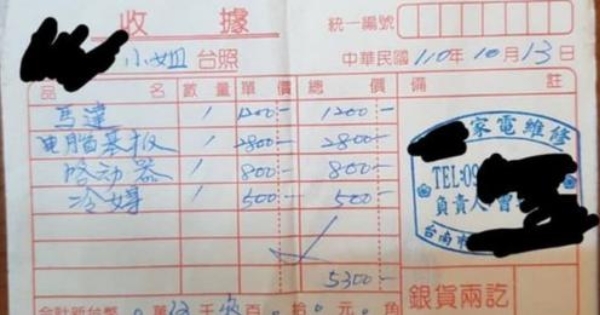 收據
統一編號
小姐 台照
中華民國 110年 10月 13日
品名 數量 單價 總價 備註
馬達 1 1200- 1200-
電腦基板 1 2800- 2800-
啓动器 1 800- 800-
冷媒 1 500- 500-
家電維修
TEL:09
負責人 曾
台南市
5300-
合計新台幣 萬 伍千 百 拾 元 角
銀貨兩訖